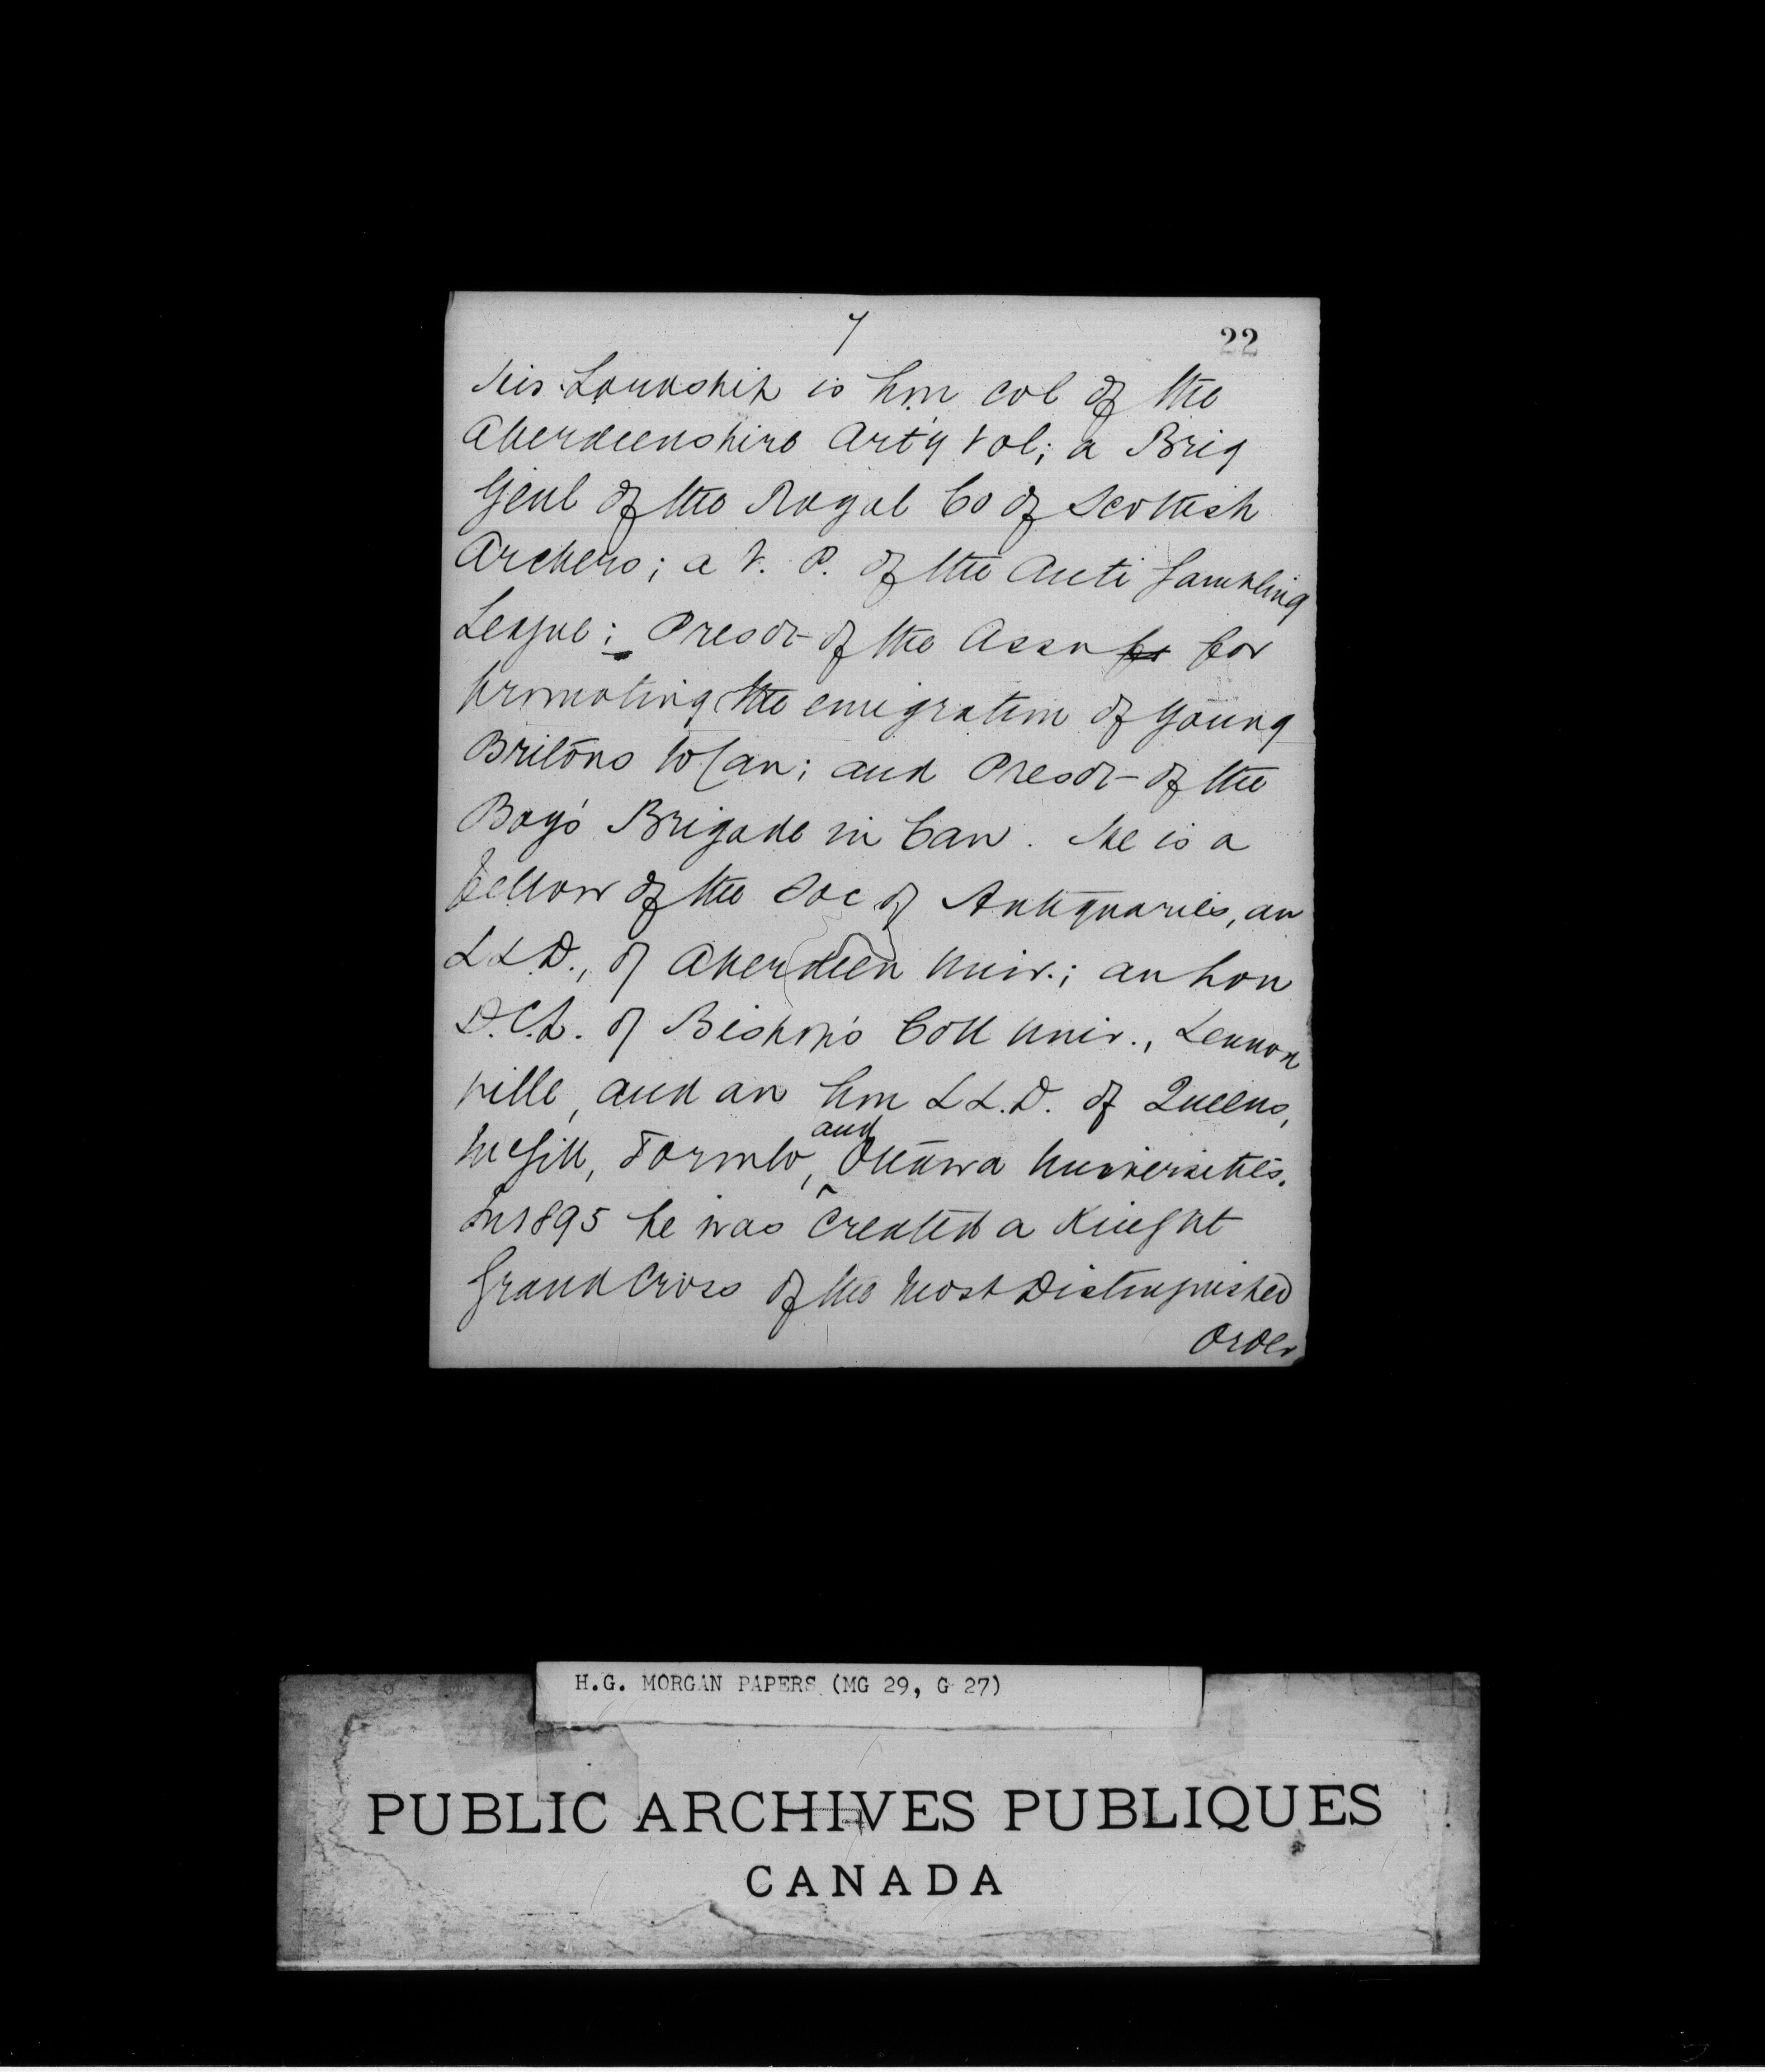 7
22
His Lordship is hon col of the
Aberdeenshire Art'y Vol; a Brig
Genl of the Royal Co of Scottish
Archers; a V. P. of the Anti Gambling
League; Presdt of the Assn for for
promoting the emigration of young
Britons to Can; and Presdt of the
Boy's Brigade in Can. He is a
fellow of the Soc of Antiquaries, an
LL.D., of Aberdeen Univ.; an hon
D.C.L. of Bishop's Coll Univ., Lennox
ville, and an hon LL.D. of Queens,
and
McGill, Toronto, Ottawa Universities.
In 1895 he was created a Knight
Grand Cross of the Most Distinguished
Order
H.G. MORGAN PAPERS (MG 29, G 27)
PUBLIC ARCHIVES PUBLIQUES
CANADA